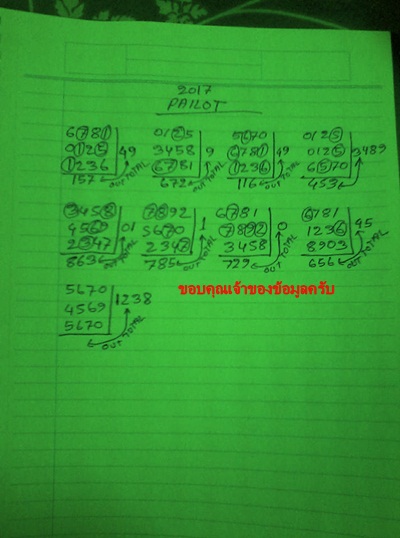 2017
PAILOT
6781 0125 5670 0125
0125 49 3458 9 6781 49 0125 3489
1236 6781 1236 6570
157 OUT TOTAL 672 OUT TOTAL 116 OUT TOTAL 453 OUT TOTAL
3458 7892 6781 6781
4569 01 5670 1 7892 0 1236 45
2347 2347 3458 8903
863 OUT TOTAL 785 OUT TOTAL 729 OUT TOTAL 656 OUT TOTAL
5670 ขอบคุณเจ้าของข้อมูลครับ
4569 1238
5670
OUT TOTAL